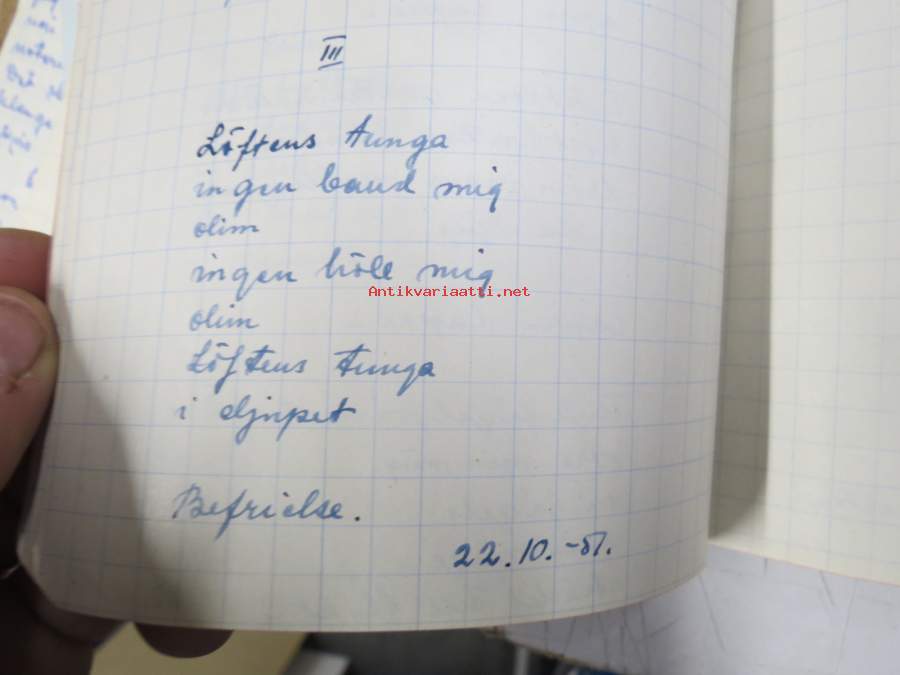 III
Löftens tunga
ingen band mig
olim
ingen höll mig
Antikvariaatti.net
olim
Löftens tunga
i djupet
Befrielse.
22.10.-51.